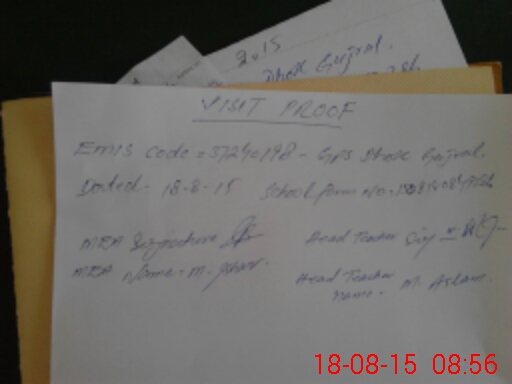 2015
Dhok Gujral.
VISIT PROOF
Emis code = 37240198 - GPS Dhok Gujral.
Dated - 18-8-15 School form No.
MEA Signature Head Teacher Sig =
MEA Name - M. Head Teacher name. M. Aslam.
18-08-15 08:56